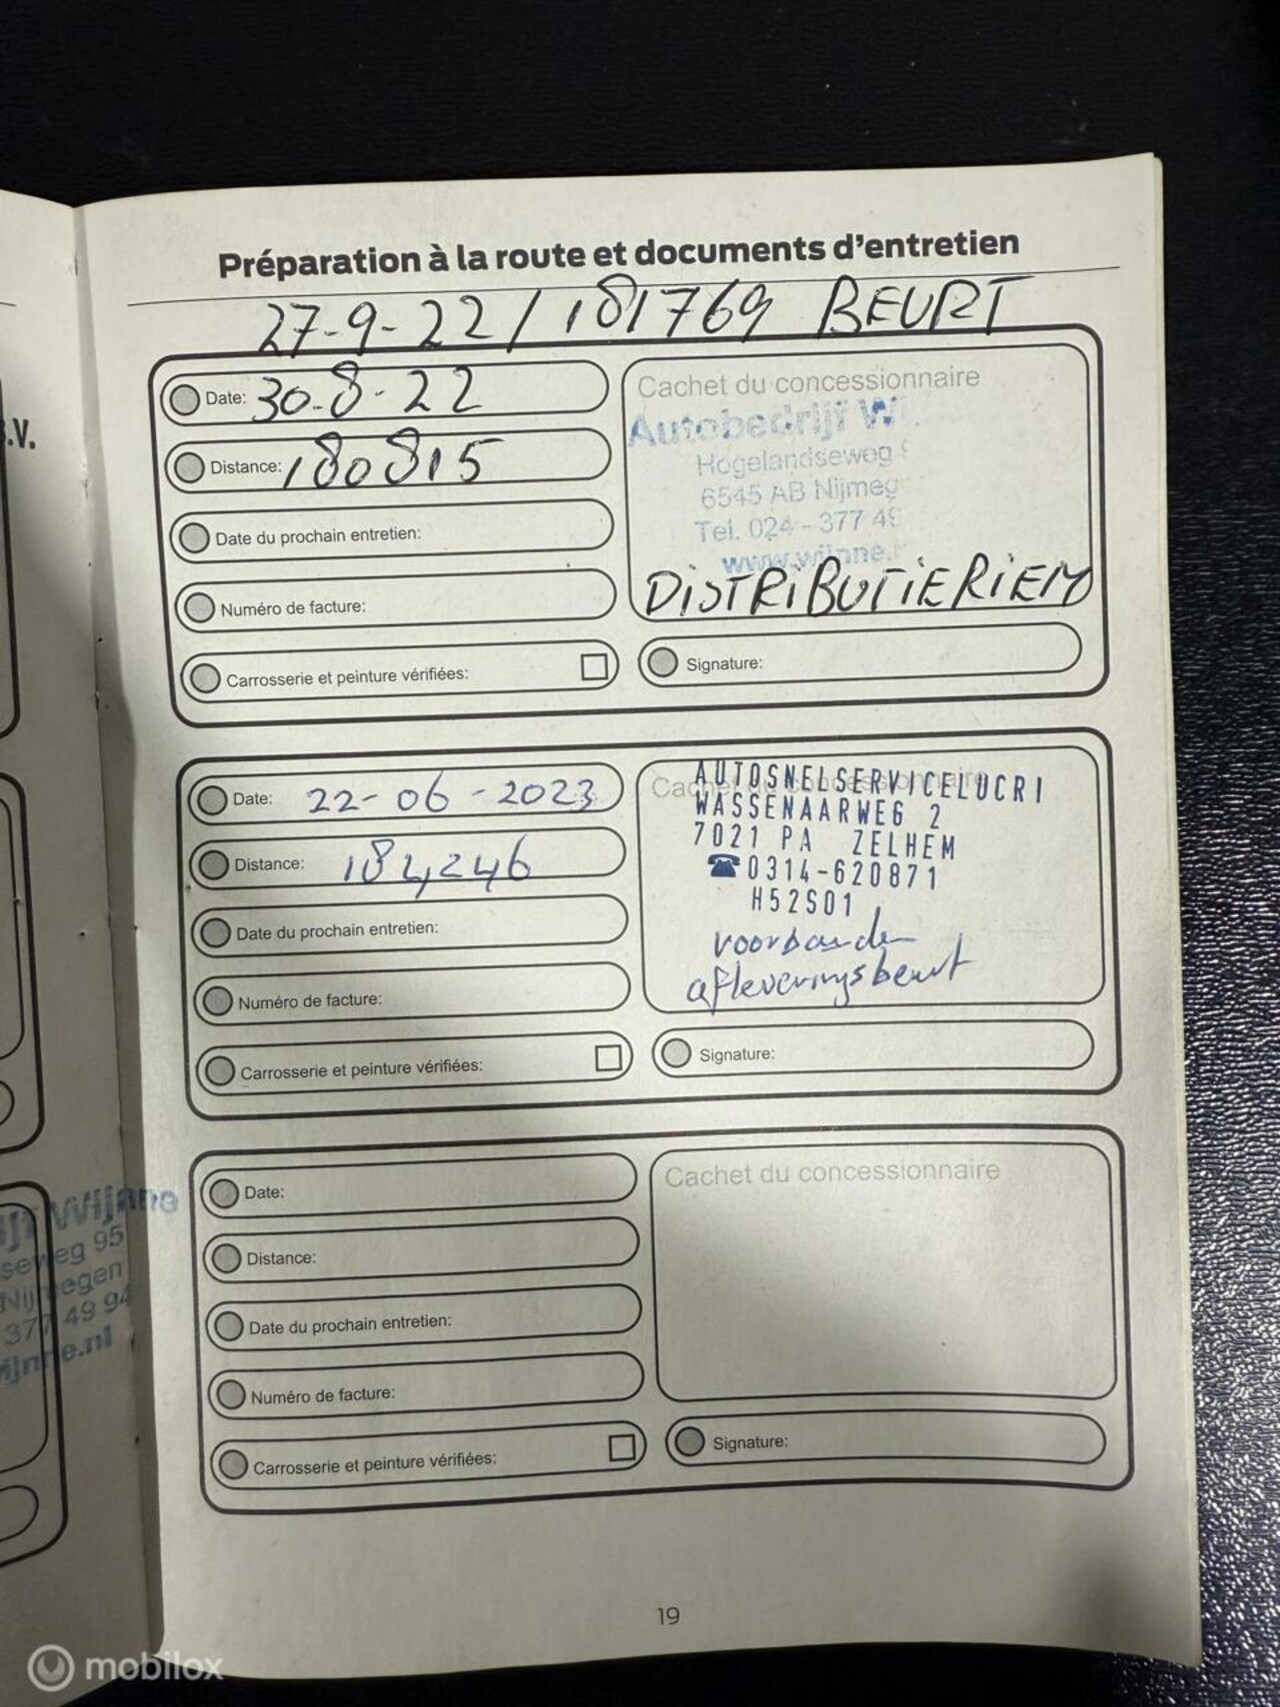 Préparation à la route et documents d'entretien
27-9-22 / 181769 BEURT
Date: 30-8-22
Distance: 180815
Date du prochain entretien:
Numéro de facture:
Carrosserie et peinture vérifiées:
Cachet du concessionnaire
Autobedrijf Wi
Hogelandseweg 9
6545 AB Nijmeg
Tel. 024 - 377 49
www.wijnne.
DISTRIBUTIERIEM
Signature:
Date: 22-06-2023
Distance: 184,246
Date du prochain entretien:
Numéro de facture:
Carrosserie et peinture vérifiées:
Cachet du concessionnaire
AUTOSNELSERVICELUCRI
WASSENAARWEG 2
7021 PA ZELHEM
☎0314-620871
H52S01
voorbanden
afleveringsbeurt
Signature:
Date:
Distance:
Date du prochain entretien:
Numéro de facture:
Carrosserie et peinture vérifiées:
Cachet du concessionnaire
Signature:
19
.V.
ijf Wijnne
seweg 95
Nijmegen
377 49 94
ijnne.nl
mobilox